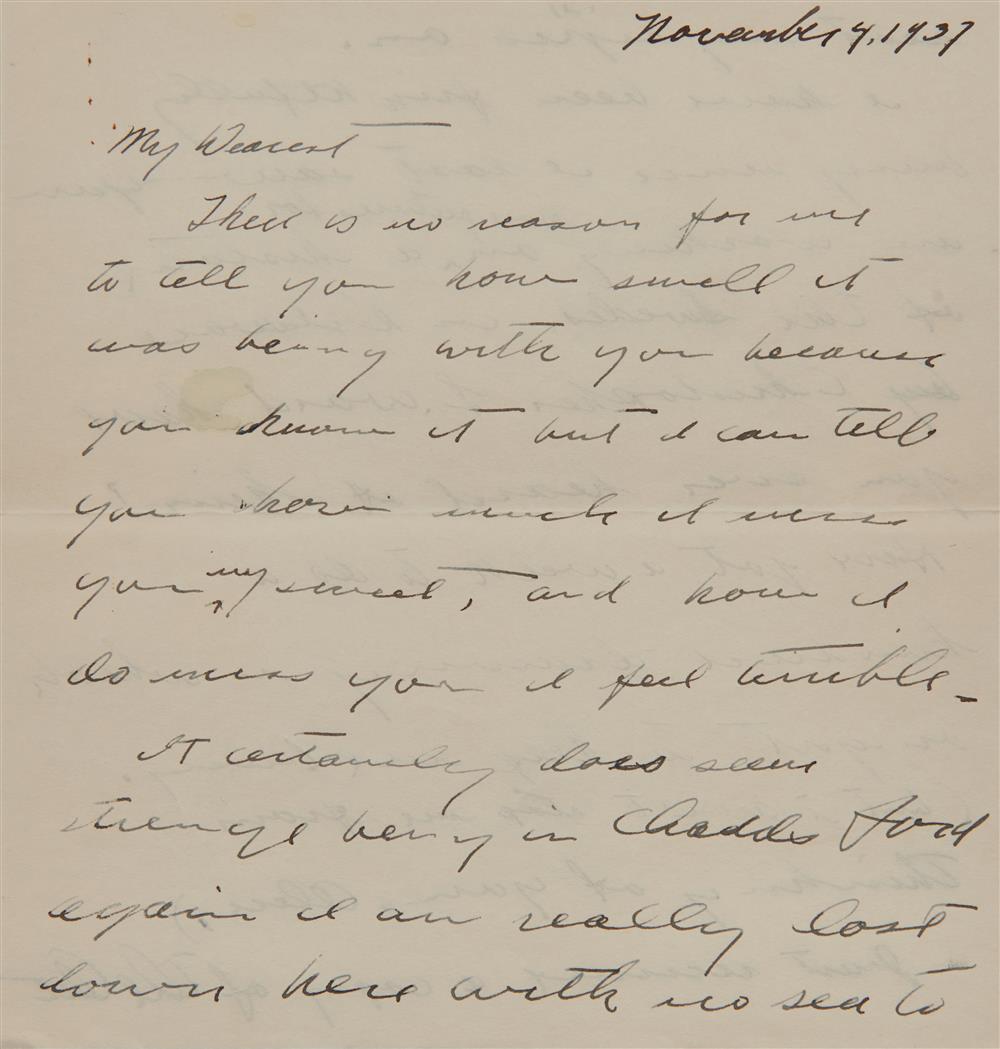 November 4, 1937
My Dearest
There is no reason for me
to tell you how swell it
was being with you because
you know it but I can tell
you how much I miss
you my sweet, and how I
do miss you I feel terrible -
It certainly does seem
strange being in Chadds Ford
again I am really lost
down here with no sea to